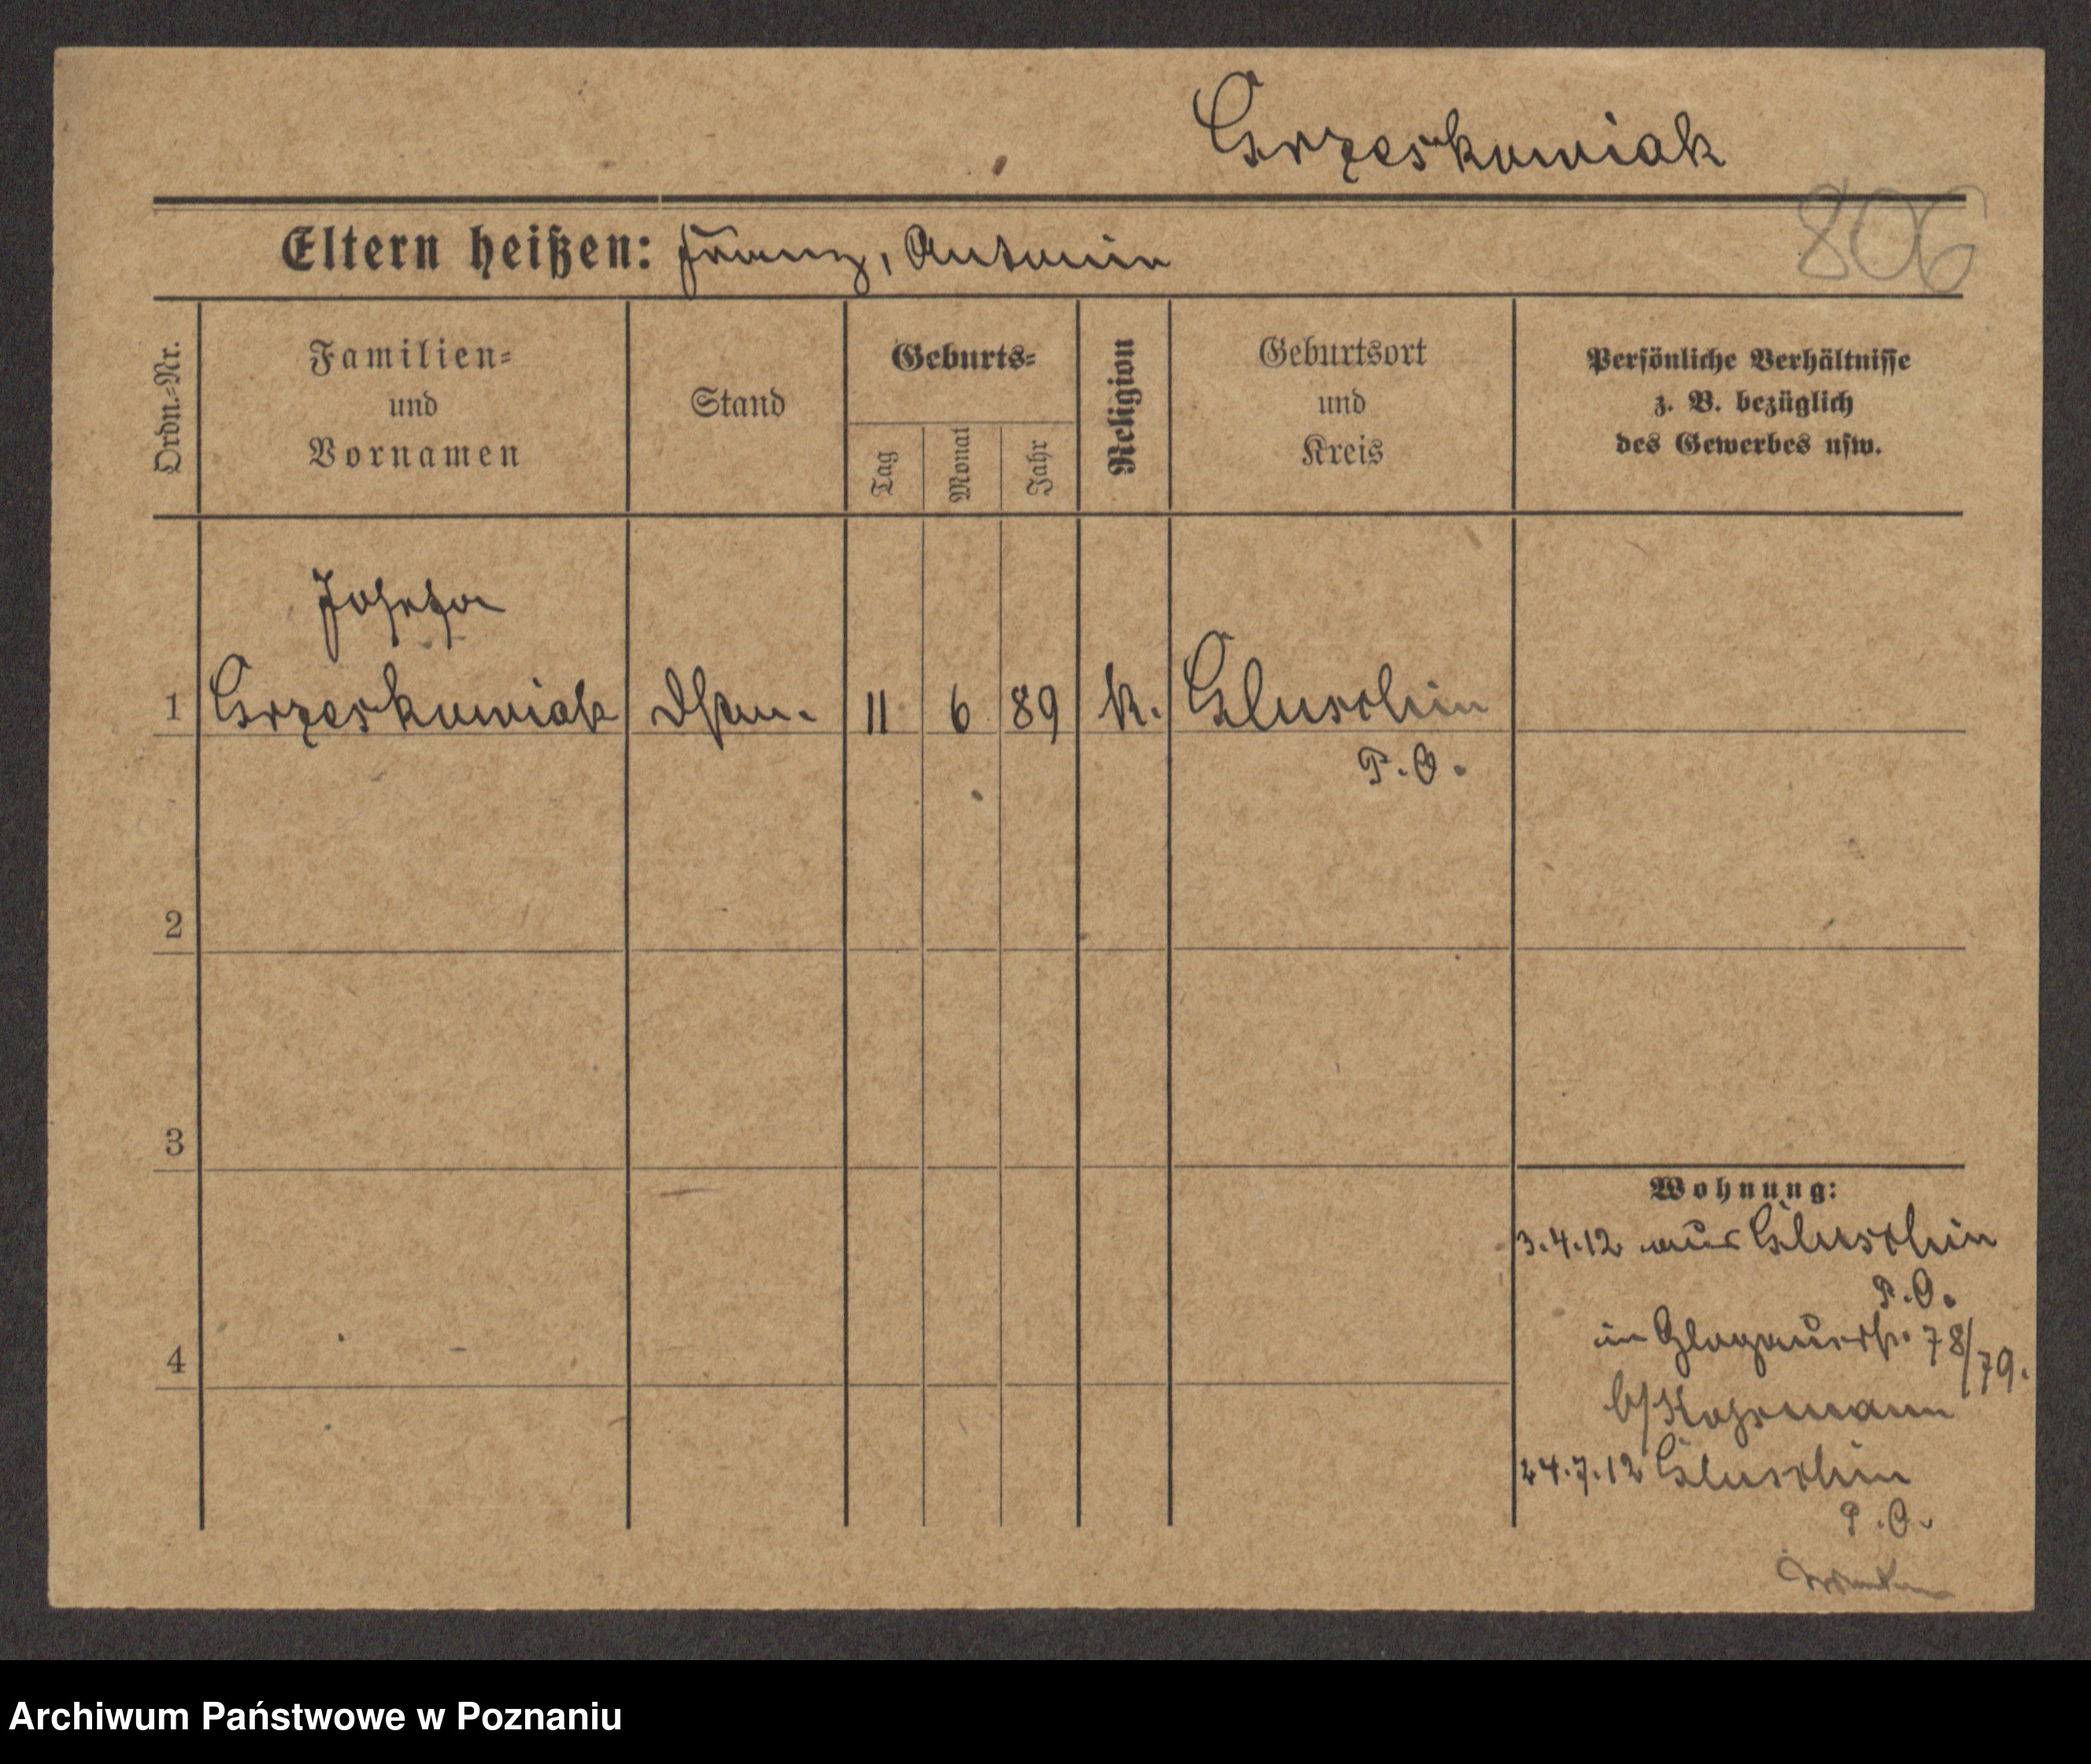 Grzeskowiak
806
Eltern heißen: Franz, Antonin
Ordn.=Nr.
Familien=
und
Vornamen
Stand
Geburts=
Tag
Monat
Jahr
Religion
Geburtsort
und
Kreis
Persönliche Verhältnisse
z. B. bezüglich
des Gewerbes usw.
Josefa
1 Grzeskowiak 11 6 89 K. Gluschin
P.O.
2
3
4
Wohnung:
3.4.12 aus Gluschin
P.O.
in Glogauerstr. 78/79.
b/
24.7.12 Gluschin
P.O.
Archiwum Państwowe w Poznaniu